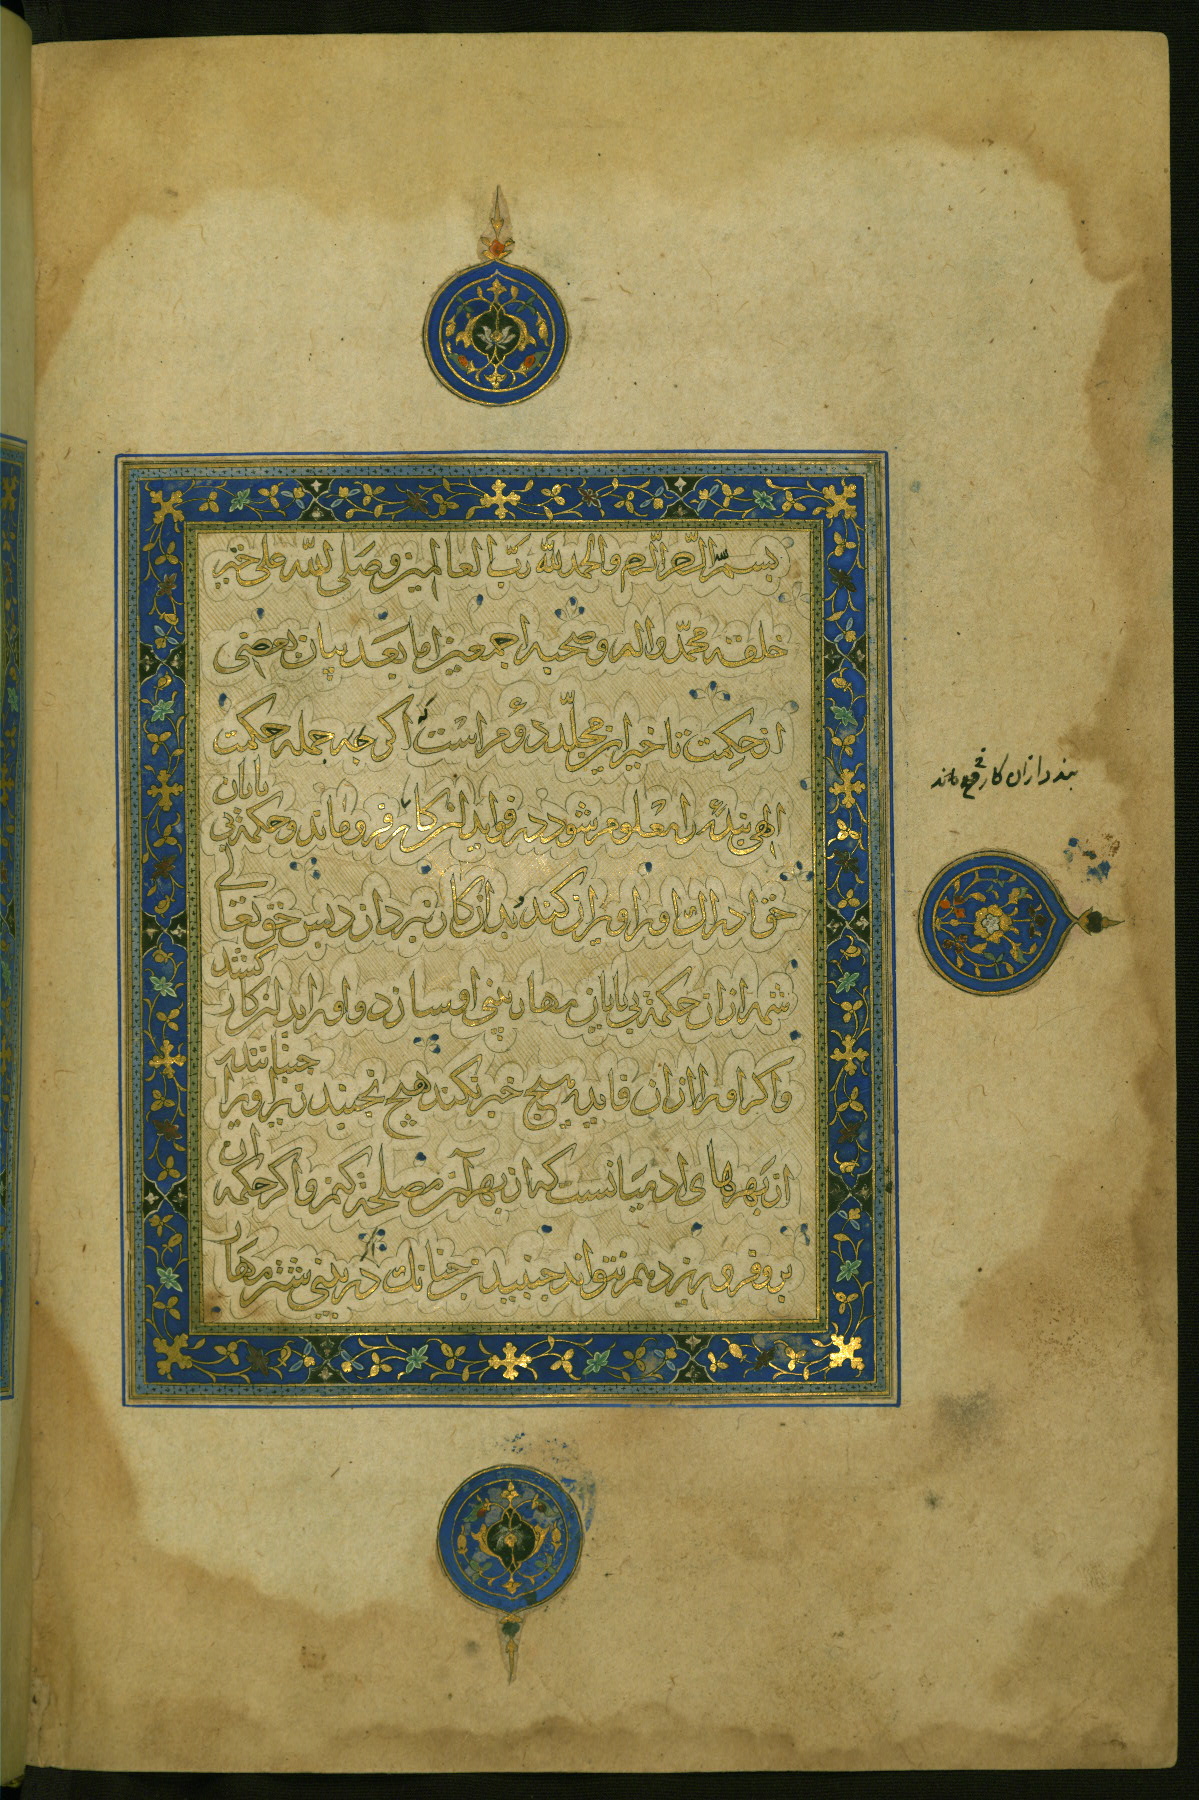 بسم الله الرحمن الرحیم والحمد لله رب العالمین وصلی الله علی خیر
خلقه محمد واله وصحبه اجمعین اما بعد بیان بعضی
از حکمت تاخیر این مجلد دوم است که اکر جه جمله حکمت
الهی بنده را معلوم شود در فواید ان کار بنده از ان کار فرو ماند وحکمة بی پایان
حق ادراک او را ویران کند بدان کار نبردازد بس حق تعالی
شمه از ان حکمة بی پایان مهار بینی او سازد و او را بدان کار کشد
واکر او را از ان فایده هیچ خبر نکند هیچ نجنبد زیرا جنباننده
از بهرهای ادمیانست که از بهر آن مصلحة کنم واکر حکمة ان
برو فرو ریزد هم نتواند جنبیدن جنانک اکر در بینی شتر مهار
بنده از ان کار فرو ماند